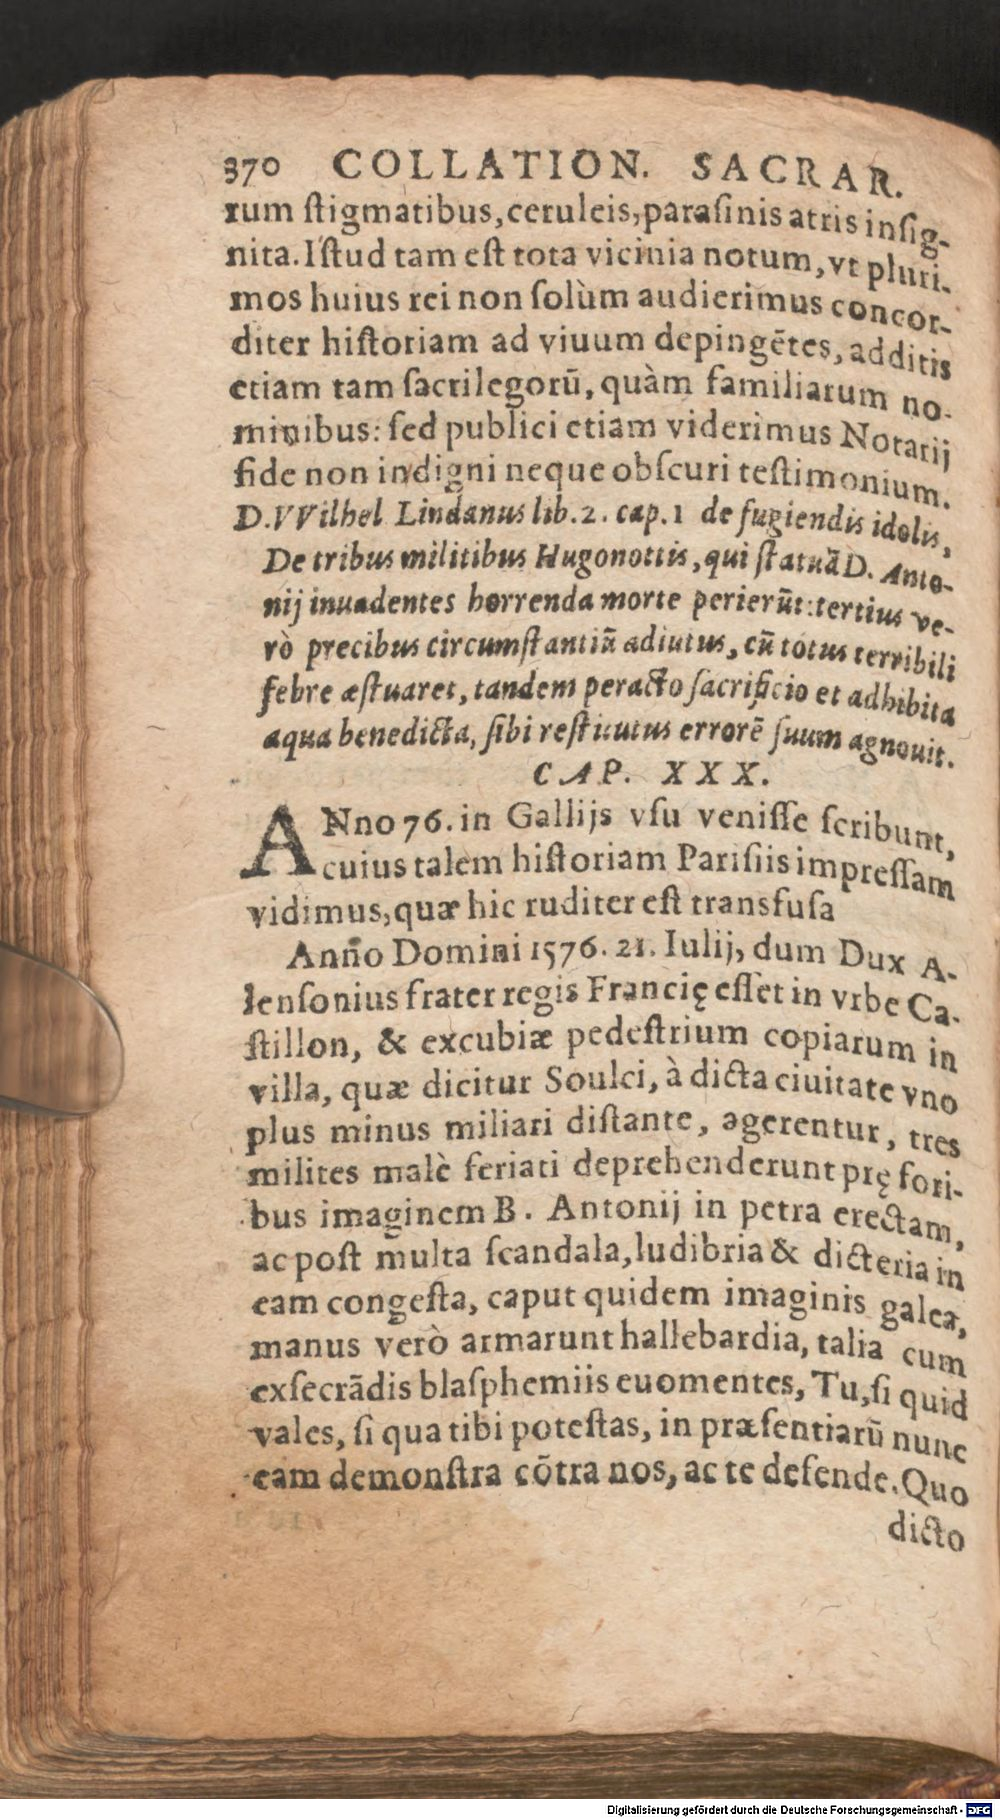 370 COLLATION. SACRAR.
rum ſtigmatibus, ceruleis, paraſinis atris inſig-
nita. Iſtud tam eſt tota vicinia notum, vt pluri-
mos huius rei non ſolùm audierimus concor-
diter hiſtoriam ad viuum depingētes, additis
etiam tam ſacrilegorū, quàm familiarum no-
minibus: ſed publici etiam viderimus Notarij
fide non indigni neque obſcuri teſtimonium.
D. VVilhel Lindanus lib. 2. cap. 1 de fugiendis idolis,
De tribus militibus Hugonottis, qui ſtatuā D. Anto-
nij inuadentes horrenda morte perierūt: tertius ve-
rò precibus circumſtantiū adiutus, cū totus terribili
febre æſtuaret, tandem peracto ſacrificio et adhibita
aqua benedicta, ſibi reſtitutus errorē ſuum agnouit.
CAP. XXX.
ANno 76. in Gallijs vſu veniſſe ſcribunt,
cuius talem hiſtoriam Pariſiis impreſſam
vidimus, quæ hic ruditer eſt transfuſa
Anno Domini 1576. 21. Iulij, dum Dux A-
lenſonius frater regis Francię eſſet in vrbe Ca-
ſtillon, & excubiæ pedeſtrium copiarum in
villa, quæ dicitur Soulci, à dicta ciuitate vno
plus minus miliari diſtante, agerentur, tres
milites malè feriati deprehenderunt prę fori-
bus imaginem B. Antonij in petra erectam,
ac poſt multa ſcandala, ludibria & dicteria in
eam congeſta, caput quidem imaginis galea,
manus verò armarunt hallebardia, talia cum
exſecrādis blaſphemiis euomentes, Tu, ſi quid
vales, ſi qua tibi poteſtas, in præſentiarū nunc
eam demonſtra cōtra nos, ac te defende. Quo
dicto
Digitalisierung gefördert durch die Deutsche Forschungsgemeinschaft - DFG